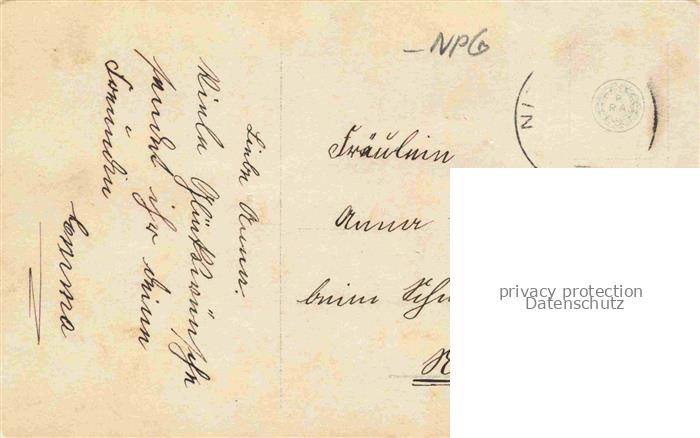 Liebe Anna.
Viele Glückwünsche
sendet ihr deine
Freundin
Emma
– NPG
Fräulein
Anna
beim Sch
N
IN
privacy protection
Datenschutz